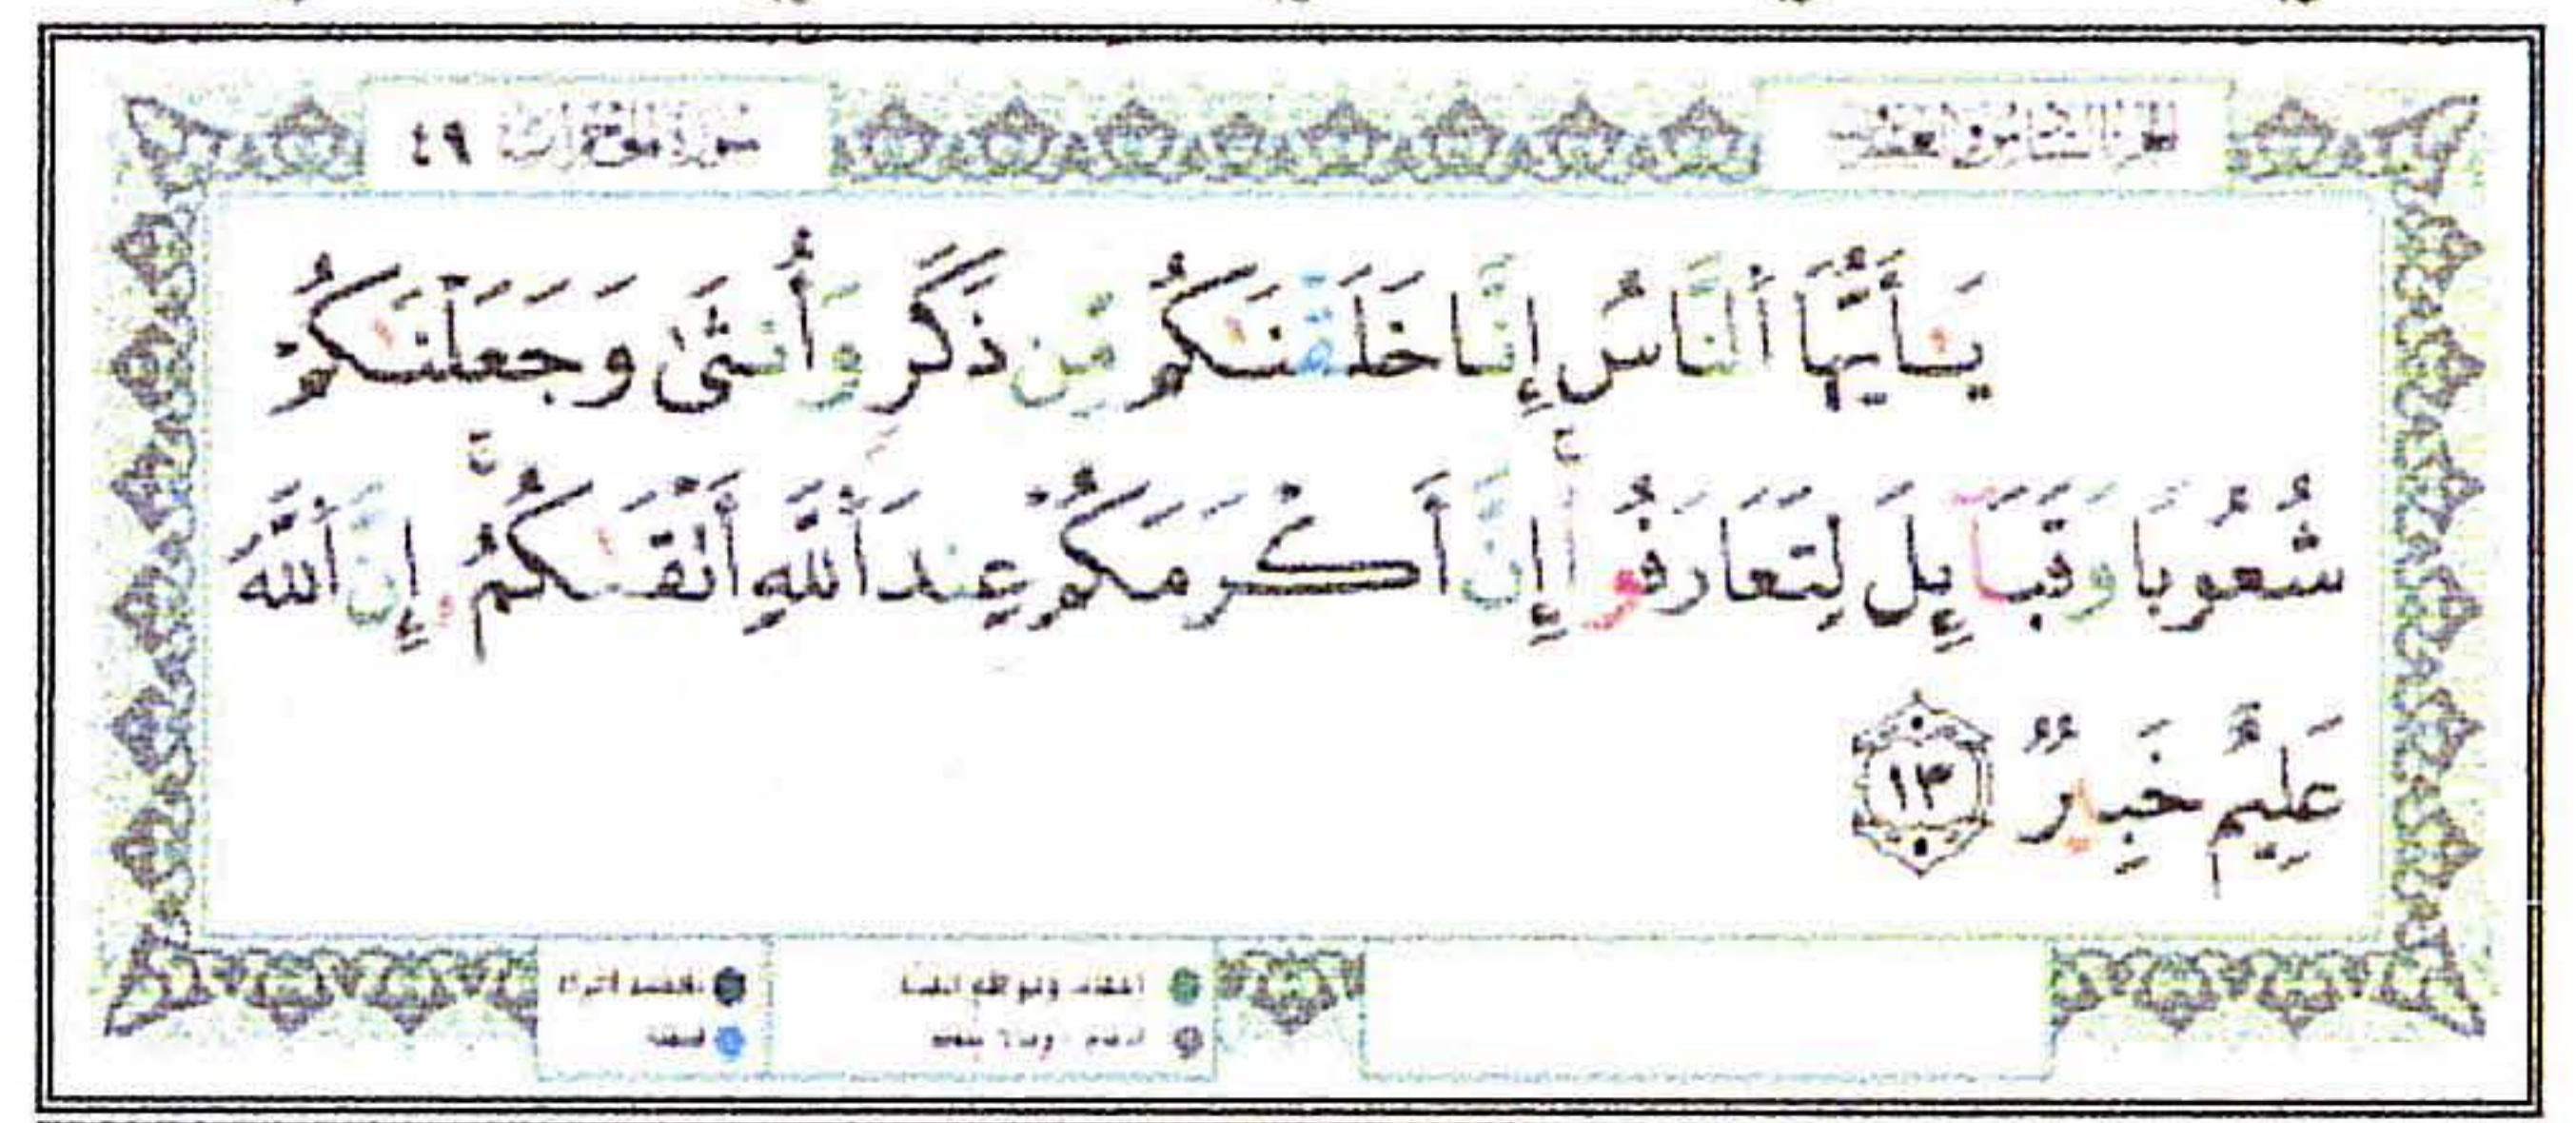 الجزء السادس والعشرون
سورة الحجرات ٤٩
يَـٰٓأَيُّهَا ٱلنَّاسُ إِنَّا خَلَقْنَـٰكُم مِّن ذَكَرٍ وَأُنثَىٰ وَجَعَلْنَـٰكُمْ
شُعُوبًا وَقَبَآئِلَ لِتَعَارَفُوٓا۟ ۚ إِنَّ أَكْرَمَكُمْ عِندَ ٱللَّهِ أَتْقَىٰكُمْ ۚ إِنَّ ٱللَّهَ
عَلِيمٌ خَبِيرٌ ١٣